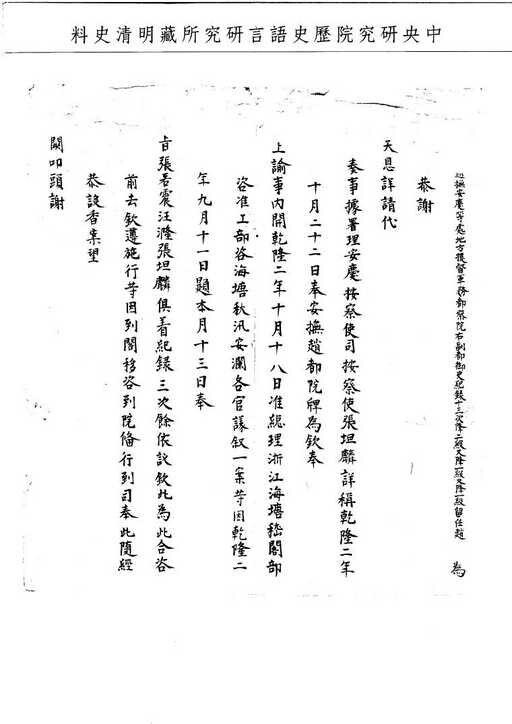 中央研究院歷史語言研究所藏明清史料
巡撫安慶等處地方提督軍務都察院右副都御史紀錄十三次降二級又降一級又降一級留任趙 為
恭謝
天恩詳請代
奏事據署理安慶按察使司按察使張坦麟詳稱乾隆二年
十月二十二日奉安撫趙都院牌為欽奉
上諭事內開乾隆二年十月十八日准總理浙江海塘嵇閣部
咨准工部咨海塘秋汛安瀾各官議敘一案等因乾隆二
年九月十一日題本月十三日奉
旨張若震汪漋張坦麟俱着紀錄三次餘依議欽此為此合咨
前去欽遵施行等因到閣移咨到院備行到司奉此隨經
恭設香案望
闕叩頭謝